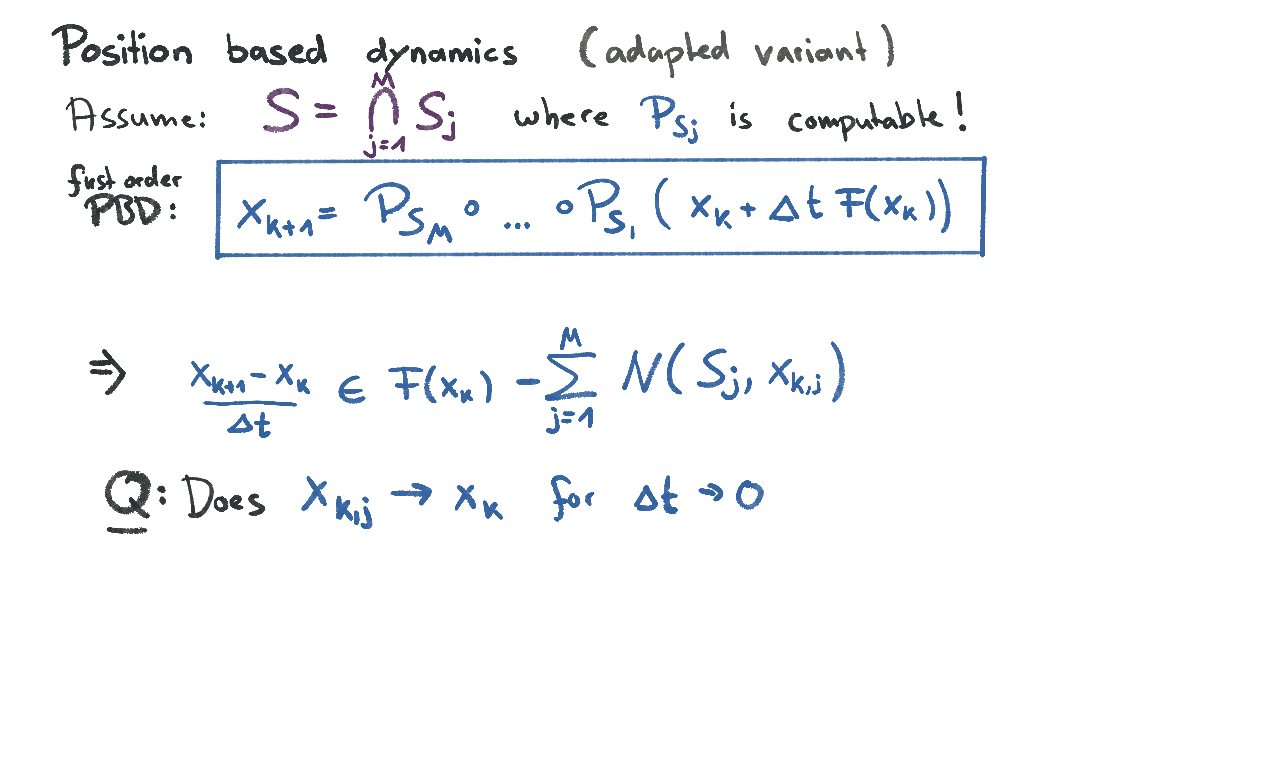 Position based dynamics (adapted variant)
Assume: S = ⋂_{j=1}^{M} S_j where P_{S_j} is computable!
first order
PBD: x_{k+1} = P_{S_M} ∘ ... ∘ P_{S_1} ( x_k + Δt F(x_k))
⇒ (x_{k+1} - x_k)/Δt ∈ F(x_k) - ∑_{j=1}^{M} N( S_j, x_{k,j})
Q: Does x_{k,j} → x_k for Δt → 0